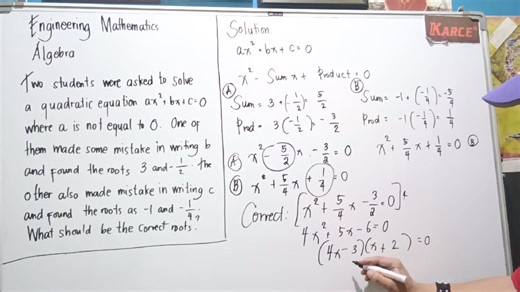 Engineering Mathematics
Algebra
Two students were asked to solve
a quadratic equation ax²+bx+c=0
where a is not equal to 0. One of
them made some mistake in writing b
and found the roots 3 and -1/2. The
other also made mistake in writing c
and found the roots as -1 and -1/4,
What should be the correct roots.
Solution
ax²+bx+c=0
x² - Sum x + Product = 0
(A)
Sum = 3 + (-1/2) = 5/2
Prod = 3(-1/2) = -3/2
(B)
Sum = -1 + (-1/4) = -5/4
Prod = -1(-1/4) = 1/4
(A) x² - 5/2 x - 3/2 = 0
x² + 5/4 x + 1/4 = 0 (B)
(B) x² + 5/4 x + 1/4 = 0
Correct: [x² + 5/4 x - 3/2 = 0]4
4x² + 5x - 6 = 0
(4x - 3)(x + 2) = 0
KARCE